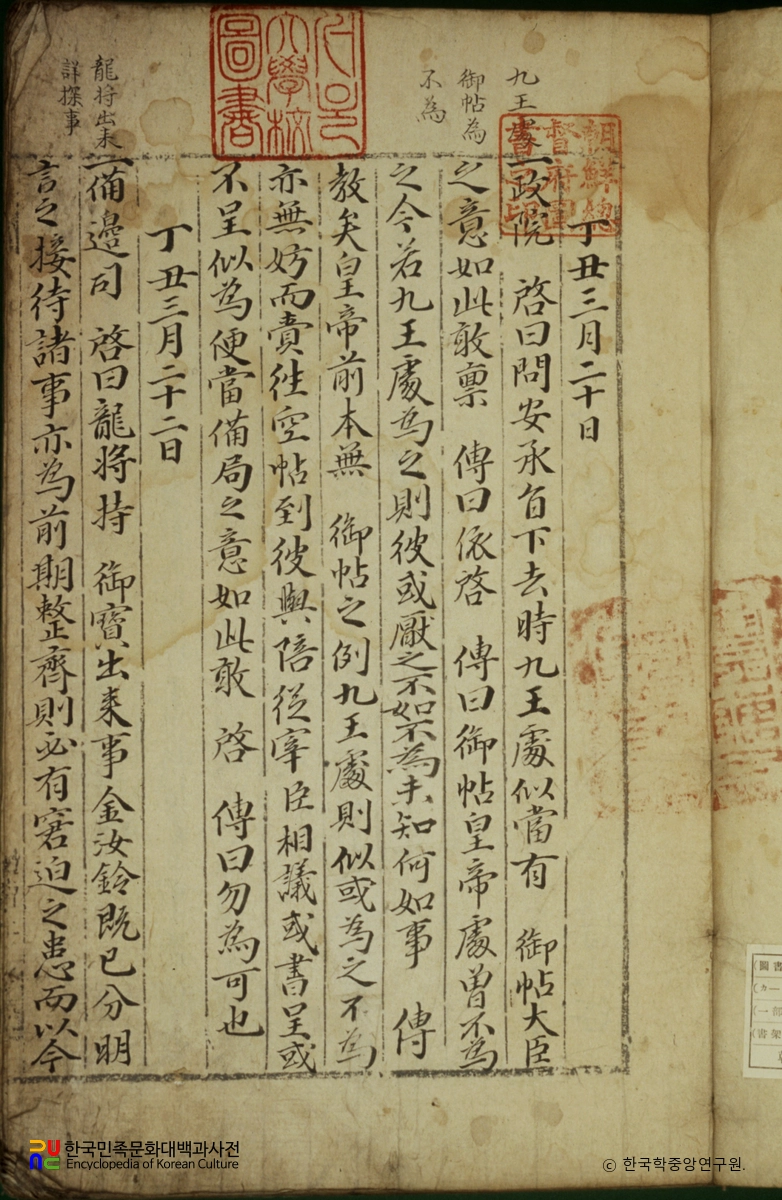 丁丑三月二十日
一政院 啓曰問安承旨下去時九王處似當有 御帖大臣
之意如此敢禀 傳曰依啓 傳曰御帖皇帝處曾不為
之今若九王處為之則彼或厭之不如不為未知何如事 傳
教矣皇帝前本無 御帖之例九王處則似或為之不為
亦無妨而賚徃空帖到彼與陪從宰臣相議或書呈或
不呈似為便當備局之意如此敢 啓 傳曰勿為可也
丁丑三月二十二日
一備邊司 啓曰龍將持 御寶出来事金汝鈴既已分明
言之接待諸事亦為前期整齊則必有窘迫之患而以今
九王
御帖為
不為
龍将出来
詳探事
大學校
圖書
朝鮮總
督府
한국민족문화대백과사전
Encyclopedia of Korean Culture
ⓒ 한국학중앙연구원.